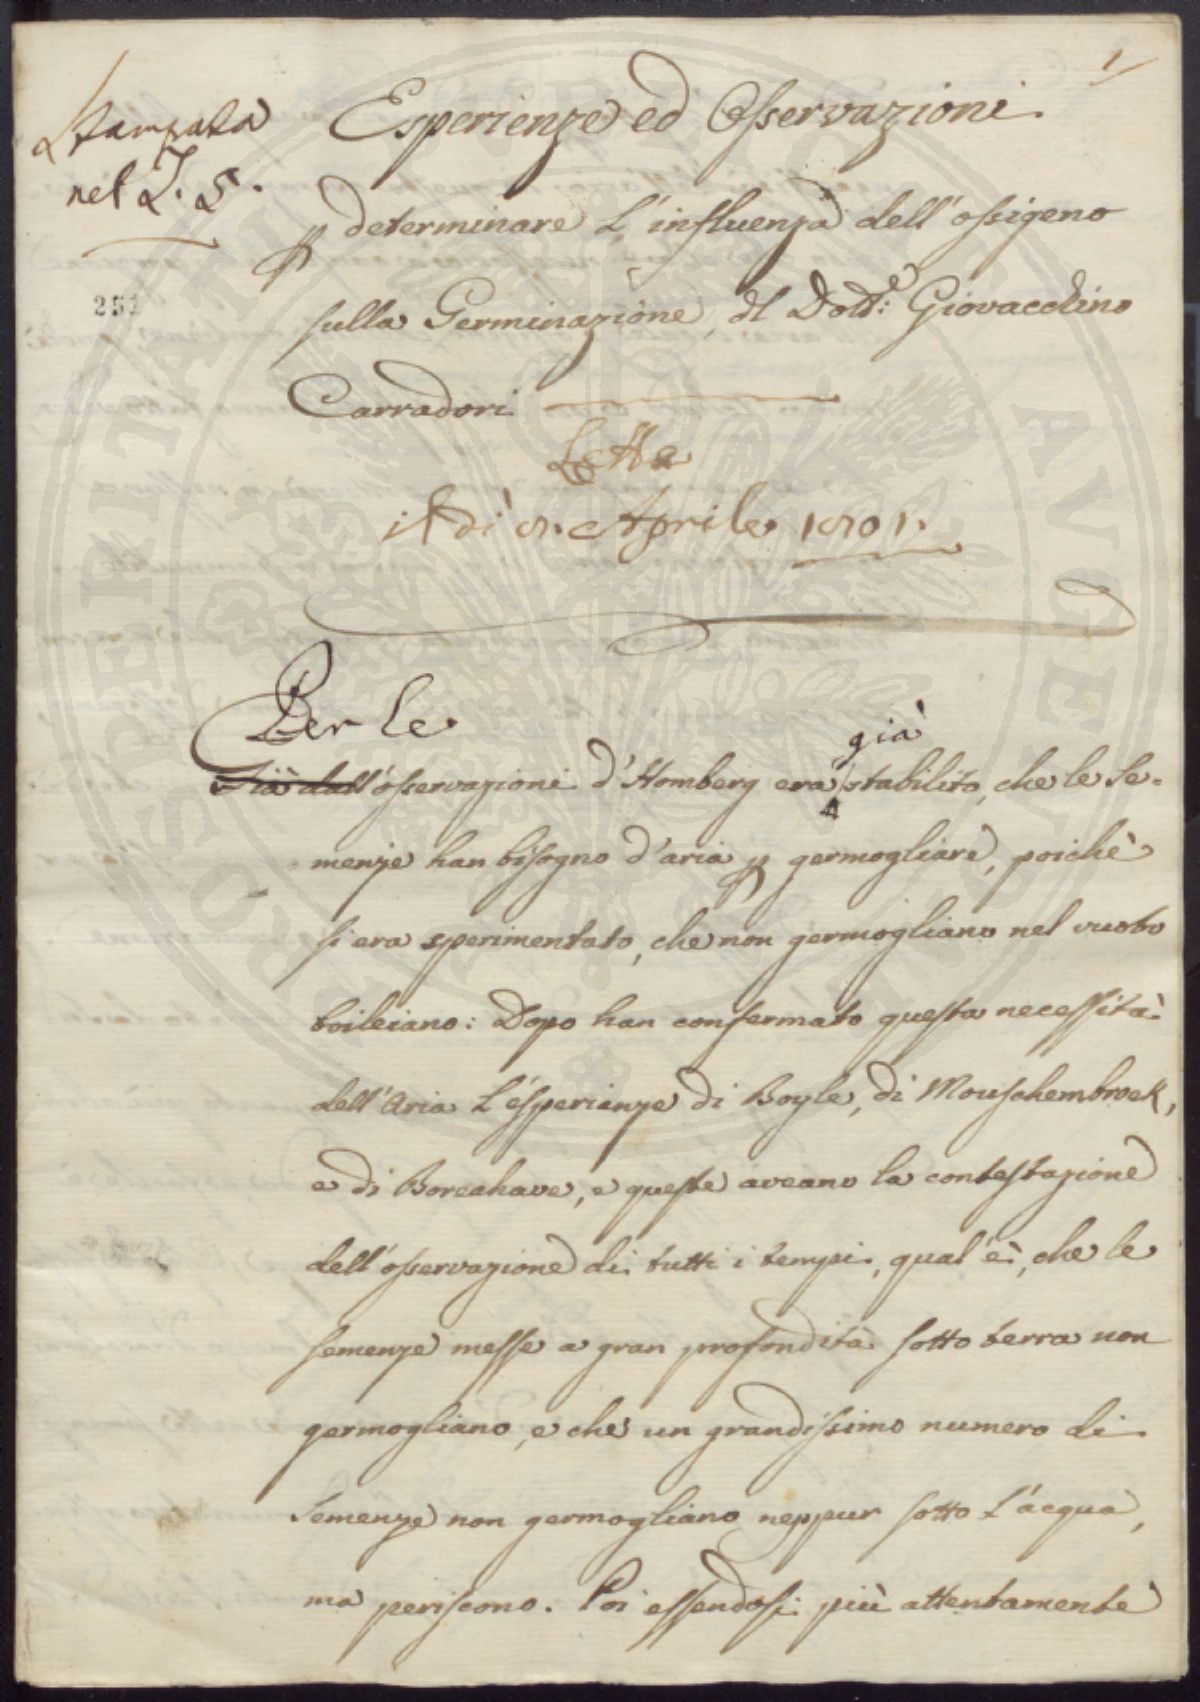 1
Stampata
nel T. 5.
251
Esperienze ed Osservazioni
p determinare l'influenza dell'ossigeno
sulla Germinazione, del Dott.e Giovacchino
Carradori
Letta
Adì 8. Aprile 1801.
Per le
già
Già dall'osservazioni d'Homberg era stabilito, che le Se-
menze han bisogno d'aria p germogliare, poichè
si era sperimentato, che non germogliano nel vuoto
boileiano: Dopo han confermato questa necessità
dell'Aria l'esperienze di Boyle, di Mouschembroek,
e di Boreahave, e queste aveano la contestazione
dell'osservazione di tutti i tempi, qual'è, che le
semenze messe a gran profondità sotto terra non
germogliano, e che un grandissimo numero di
Semenze non germogliano neppur sotto l'acqua,
ma periscono. Poi essendosi più attentamente
PROSPERITATI PUBLICAE AVGENDAE